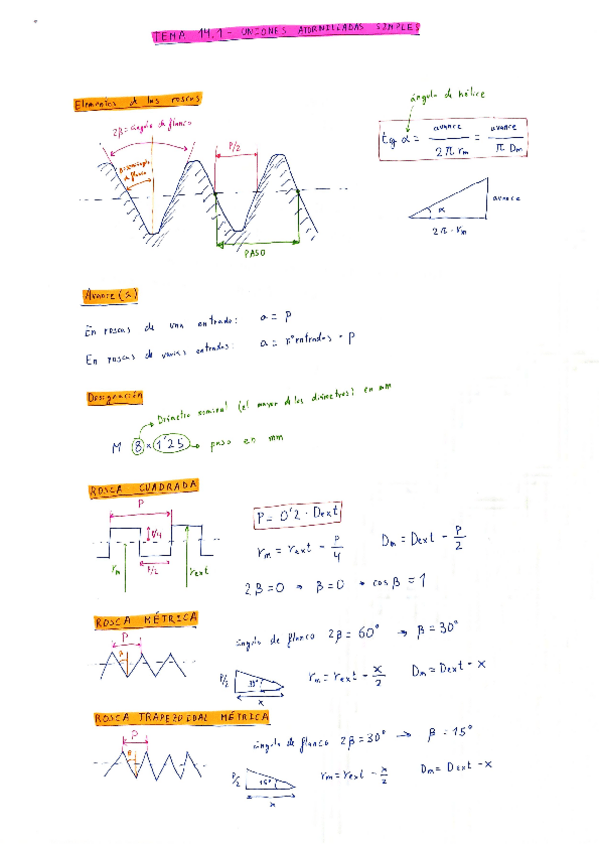 TEMA 14.1 - UNIONES ATORNILLADAS SIMPLES
Elementos de las roscas
2β = ángulo de flanco
β = semiángulo de flanco
P/2
PASO
ángulo de hélice
tg α = avance / 2π rm = avance / π Dm
α
avance
2π · rm
Avance (a)
En roscas de una entrada: a = P
En roscas de varias entradas: a = nº entradas · P
Designación
Diámetro nominal (el mayor de los diámetros) en mm
M 8 × 1'25 → paso en mm
ROSCA CUADRADA
P
P/2
rm
rext
P = 0'2 · Dext
rm = rext - P/4
Dm = Dext - P/2
2β = 0 → β = 0 → cos β = 1
ROSCA MÉTRICA
P
ángulo de flanco 2β = 60° → β = 30°
P/2
30°
x
rm = rext - x/2
Dm = Dext - x
ROSCA TRAPEZOIDAL MÉTRICA
P
ángulo de flanco 2β = 30° → β = 15°
P/2
15°
x
rm = rext - x/2
Dm = Dext - x